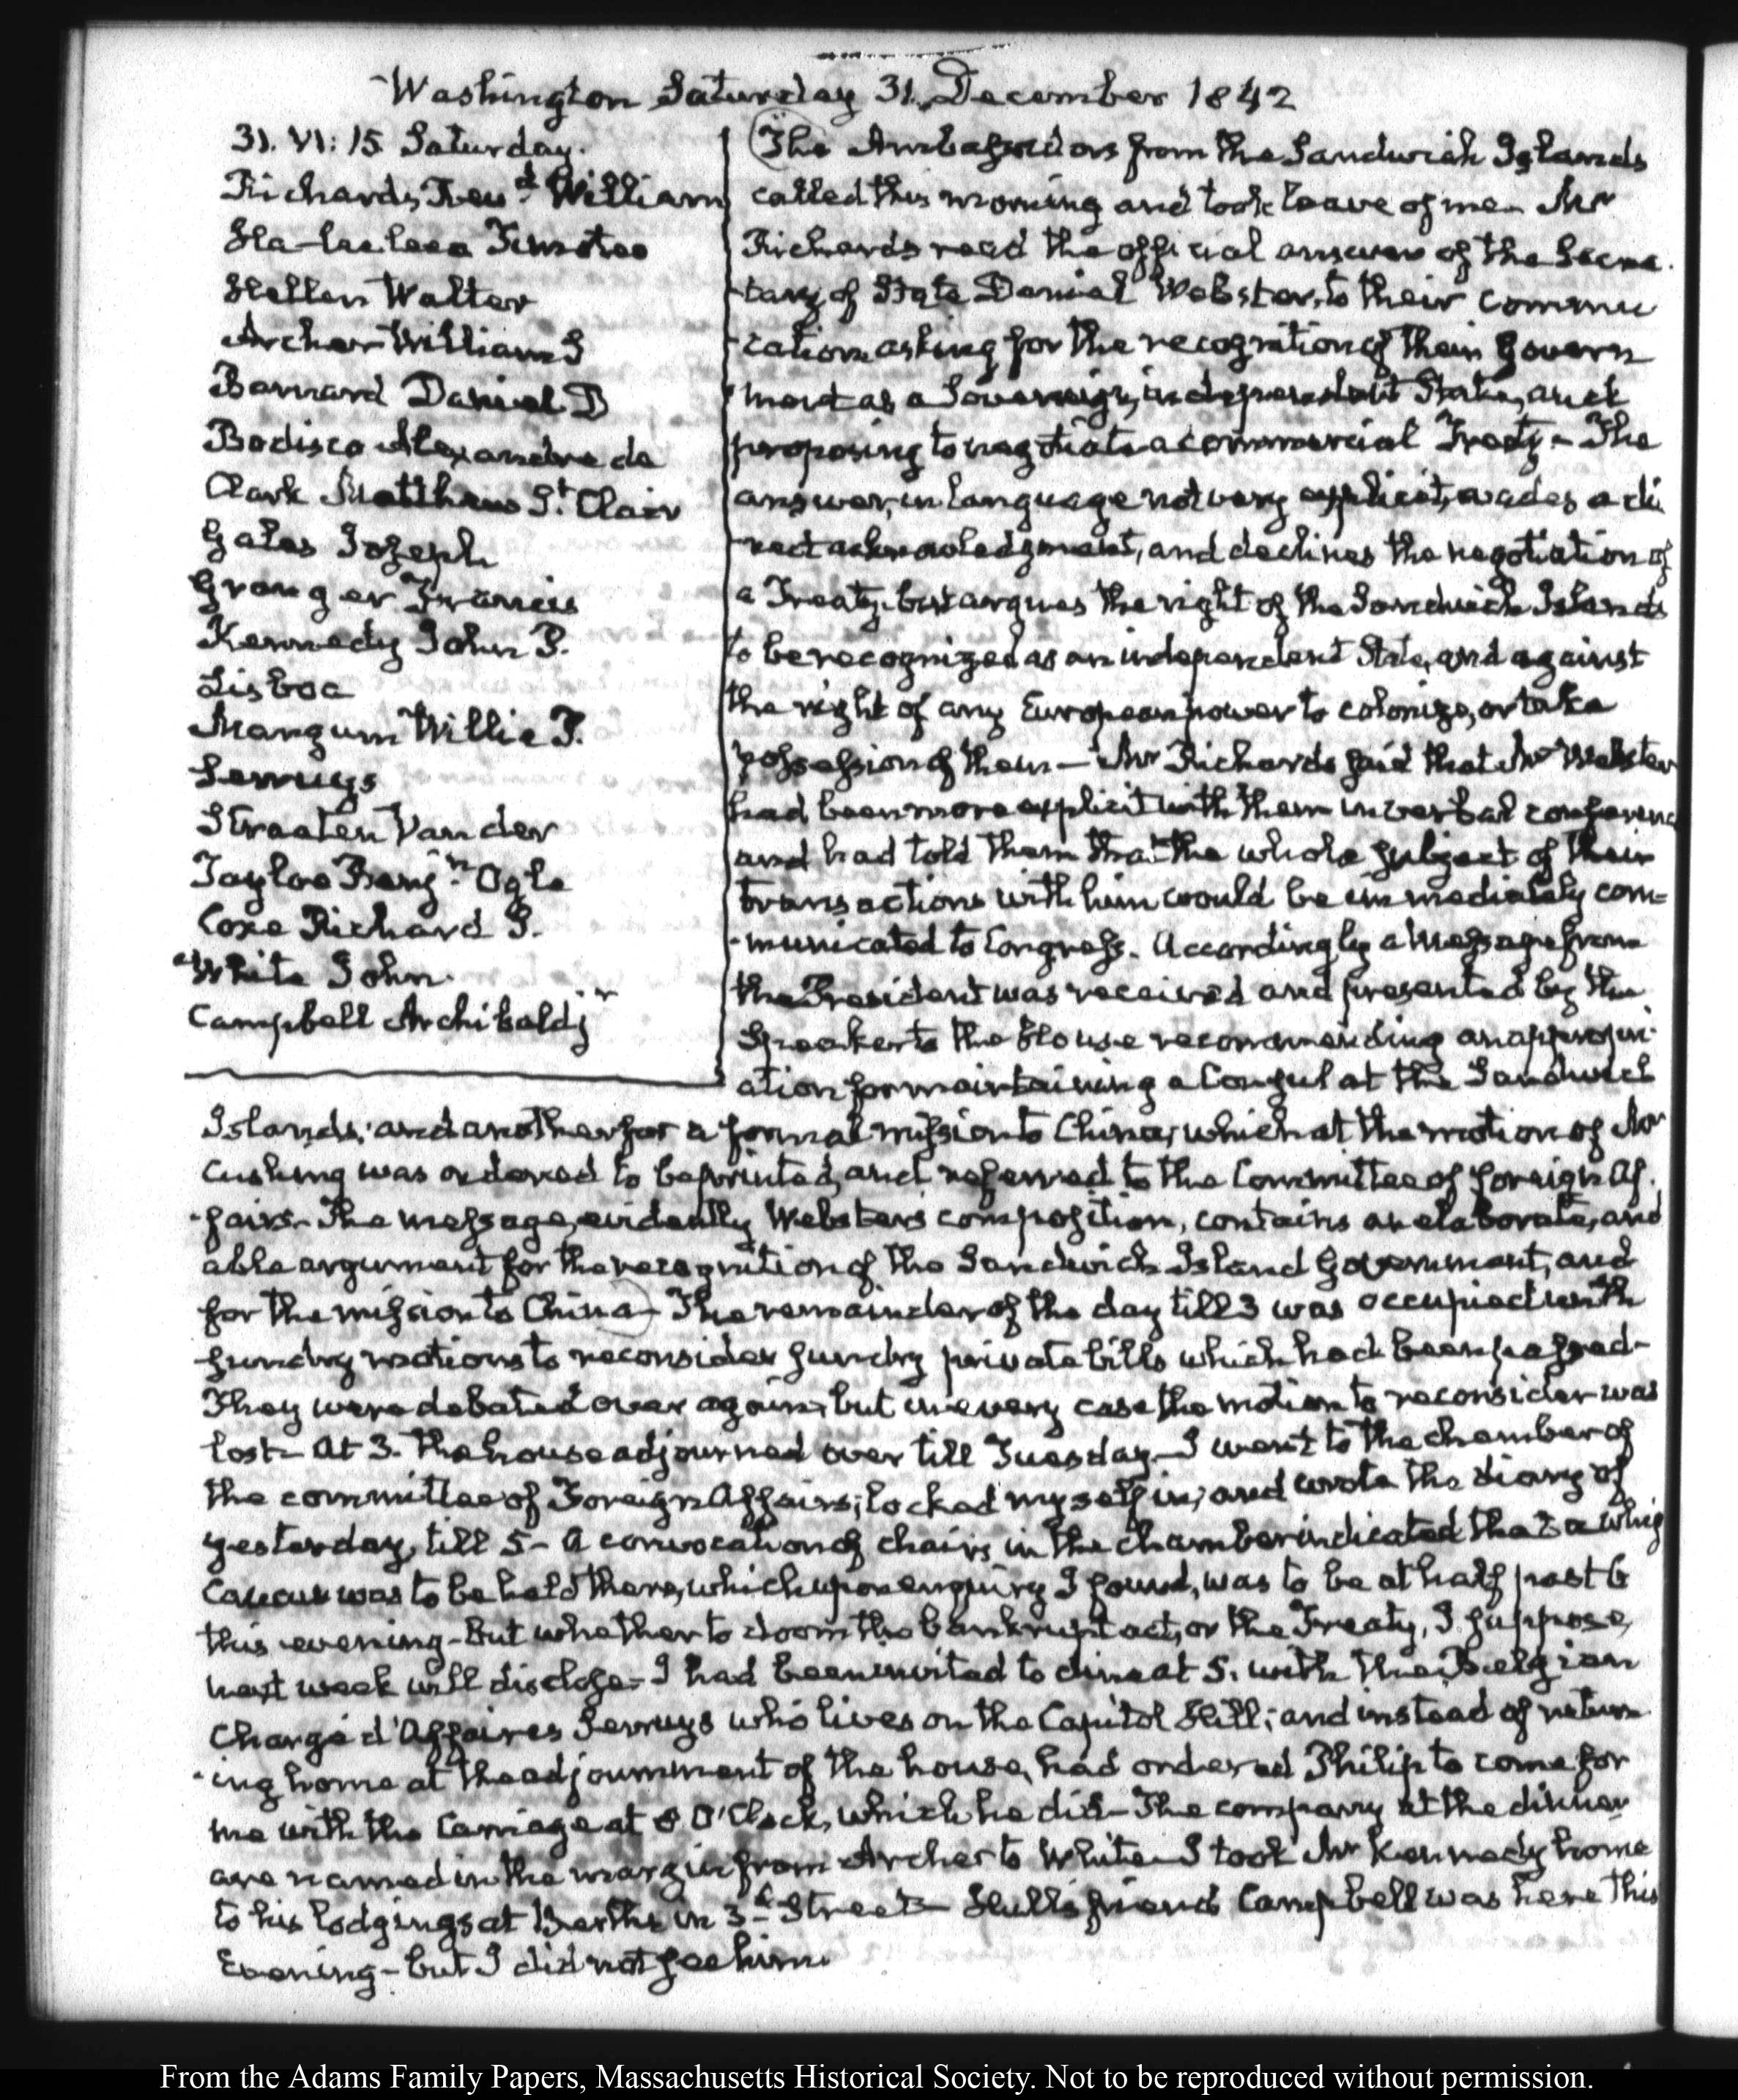 Washington Saturday 31. December 1842
31. VI: 15 Saturday.
Richards Revd. William
Ha-lee leea Timoteo
Hellen Walter
Archer William S
Barnard Daniel D
Bodisco Alexandre de
Clark Matthew St. Clair
Gales Joseph
Granger Francis
Kennedy John P.
Lisboa
Mangum Willie P.
Serruys
Straeten Van der
Tayloe Benjn. Ogle
Coxe Richard S.
White John
Campbell Archibald jr
The Ambassadors from the Sandwich Islands
called this morning and took leave of me— Mr
Richards read the official answer of the Secre-
-tary of State Daniel Webster, to their commu
-cation asking for the recognition of their Govern
-ment as a Sovereign, independent State, and
proposing to negotiate a commercial Treaty— The
answer, in language not very explicit, evades a di
-rect acknowledgment, and declines the negotiation of
a Treaty, but argues the right of the Sandwich Islands
to be recognized as an independent State, and against
the right of any European power to colonize, or take
possession of them— Mr Richards said that Mr Webster
had been more explicit with them in verbal conference
and had told them that the whole subject of their
transactions with him would be immediately com-
-municated to Congress. Accordingly a Message from
the President was received and presented by the
Speaker to the House recommending an appropri-
ation for maintaining a Consul at the Sandwich
Islands; and another for a formal mission to China, which at the motion of Mr
Cushing was ordered to be printed, and referred to the Committee of foreign Af-
-fairs— The message, evidently Webster's composition, contains an elaborate, and
able argument for the recognition of the Sandwich Island Government, and
for the mission to China— The remainder of the day till 3 was occupied with
sundry motions to reconsider sundry private bills which had been passed—
They were debated over again, but in every case the motion to reconsider was
lost— At 3. the house adjourned over till Tuesday— I went to the chamber of
the committee of Foreign Affairs; locked myself in; and wrote the diary of
yesterday, till 5— A convocation of chairs in the chamber indicated that a Whig
Caucus was to be held there, which upon enquiry I found, was to be at half past 6
this evening— But whether to doom the bankrupt act, or the Treaty, I suppose,
next week will disclose— I had been invited to dine at 5. with the Belgian
Chargé d'Affaires Serruys who lives on the Capitol Hill; and instead of return
-ing home at the adjournment of the house, had ordered Philip to come for
me with the Carriage at 8 O'Clock, which he did— The company at the dinner
are named in the margin from Archer to White— I took Mr Kennedy home
to his lodgings at Barths in 3d. Street— Hulls friend Campbell was here this
Evening— but I did not see him.
From the Adams Family Papers, Massachusetts Historical Society. Not to be reproduced without permission.